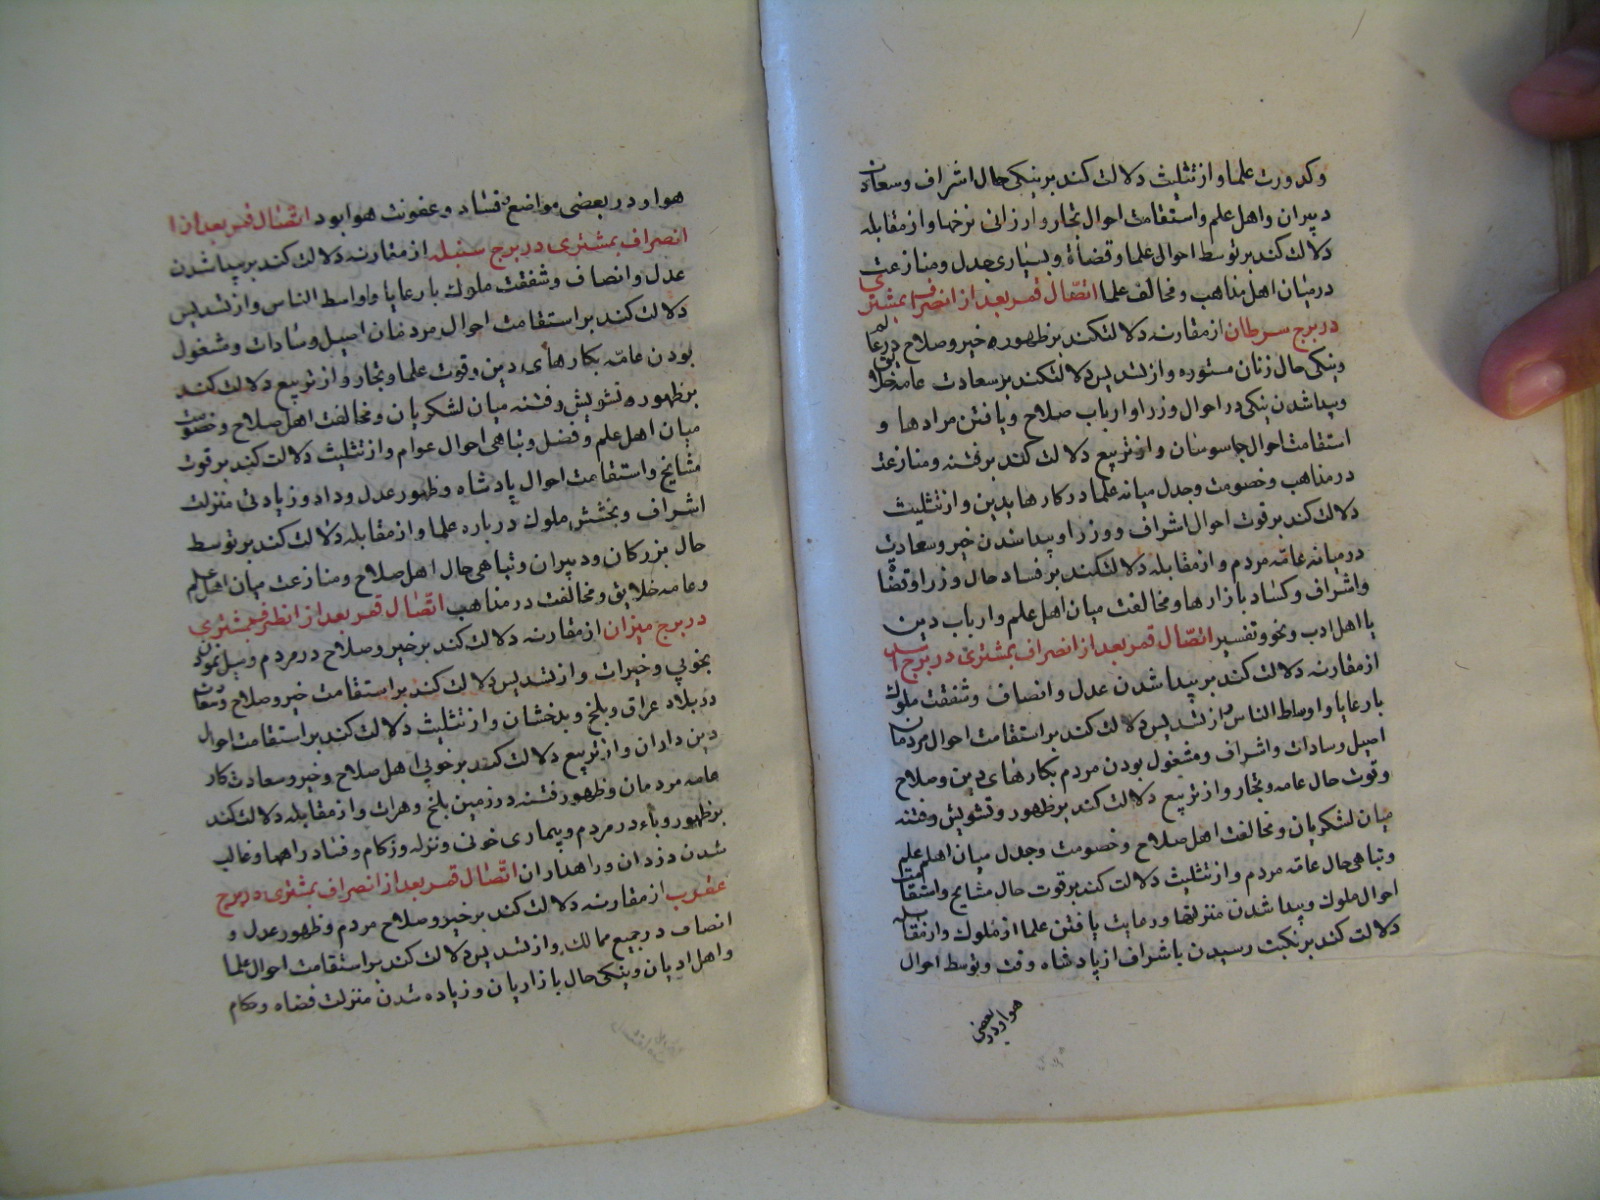 وکدورت علما و از تثلیث دلالت کند بر نیکی حال اشراف و سعادت
دبیران و اهل علم و استقامت احوال تجار و ارزانی نرخها و از مقابله
دلالت کند بر توسط احوال علما و قضاة و بسیاری جدل و منازعت
در میان اهل مذاهب و مخالف علما اتصال قمر بعد از انصراف بمشتری
در برج سرطان از مقارنه دلالتکند بر ظهوره خیر و صلاح در عالم
و نیکی حال زنان مستوره و از تسدیس دلالتکند بر سعادت عامه خلایق
و پیدا شدن نیکی در احوال وزرا و ارباب صلاح و یافتن مرادها و
استقامت احوال جاسوسان و از تربیع دلالت کند بر فتنه و منازعت
در مذاهب و خصومت و جدل میانه علما در کارها یدین و از تثلیث
دلالت کند بر قوت احوال اشراف و وزرا و پیدا شدن خیر و سعادت
در میانه عامّه مردم و از مقابله دلالتکند بر فساد حال وزرا و قضا
و اشراف و کساد بازارها و مخالفت میان اهل علم و ارباب دین
با اهل ادب و نحو و تفسیر اتصال قمر بعد از انصراف بمشتری در برج اسد
از مقارنه دلالت کند بر پیدا شدن عدل و انصاف و شفقت ملوک
با رعایا و اوساط الناس و از تسدیس دلالت کند بر استقامت احوال مردمان
اصیل و سادات و اشراف و مشغول بودن مردم بکارهای دین و صلاح
و قوت حال عامه و تجار و از تربیع دلالت کند بر ظهور و تشویش و فتنه
میان لشکریان و مخالفت اهل صلاح و خصومت و جدل میان اهلم علم
و تباهی حال عامّه مردم و از تثلیث دلالت کند بر قوت حال مشایخ و استقامت
احوال ملوک و پیدا شدن منزلتها و رعایت یافتن علما از ملوک و از مقابله
دلالت کند بر نکبت رسیدن باشراف از پادشاه وقت و توسط احوال
هوا و در بعضی
هوا و در بعضی مواضع فساد و عفونت هوا بود اتصال قمر بعد از
انصراف بمشتری در برج سنبله از مقارنه دلالت کند بر پیدا شدن
عدل و انصاف و شفقت ملوک با رعایا و اواسط الناس و از تسدیس
دلالت کند بر استقامت احوال مردمان اصیل و سادات و شغول
بودن عامّه بکارهای دین و قوت علما و تجار و از تربیع دلالت کند
بر ظهوره تشویش و فتنه میان لشکریان و مخالفت اهل صلاح و خصومت
میان اهل علم و فضل و تباهی احوال عوام و از تثلیث دلالت کند بر قوت
مشایخ و استقامت احوال پادشاه و ظهور عدل و داد و زیادتی منزلت
اشراف و بخشش ملوک در باره علما و از مقابله دلالت کند بر توسط
حال بزرکان و دبیران و تباهی حال اهل صلاح و منازعت میان اهل علم
و عامه خلایق و مخالفت در مذاهب اتصال قمر بعد از انصراف بمشتری
در برج میزان از مقارنه دلالت کند بر خیر و صلاح در مردم و میل نمودن
بخوبی و خیرات و از تسدیس دلالت کند بر استقامت خیر و صلاح و سعادت
در بلاد عراق و بلخ و بدخشان و از تثلیث دلالت کند بر استقامت احوال
دین داران و از تربیع دلالت کند بر خوبی اهل صلاح و خیر و سعادت کار
عامه مردمان و ظهور فتنه در زمین بلخ و هرات و از مقابله دلالت کند
بر ظهور وباء در مردم و بیماری خونی و نزله و زکام و فساد راهها و غالب
شدن دزدان و راهداران اتصال قمر بعد از انصراف بمشتری در برج
عقرب از مقارنه دلالت کند بر خیر و صلاح مردم و ظهور عدل و
انصاف در جمیع ممالک و از تسدیس دلالت کند بر استقامت احوال علما
و اهل ادیان و نیکی حال بازاریان و زیاده شدن منزلت قضاه و حکام